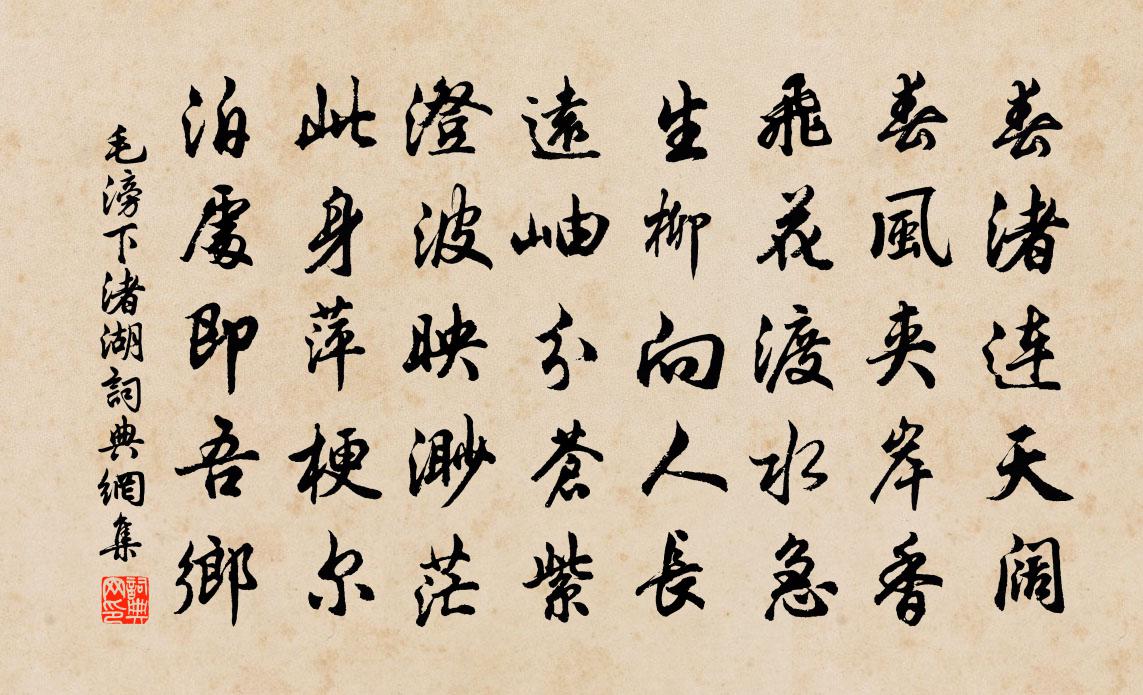 春渚連天阔
春風夹岸香
飛花渡水急
生柳向人長
遠岫分蒼紫
澄波映渺茫
此身萍梗尔
泊處即吾鄉
毛滂下渚湖詞典網集
詞典网印